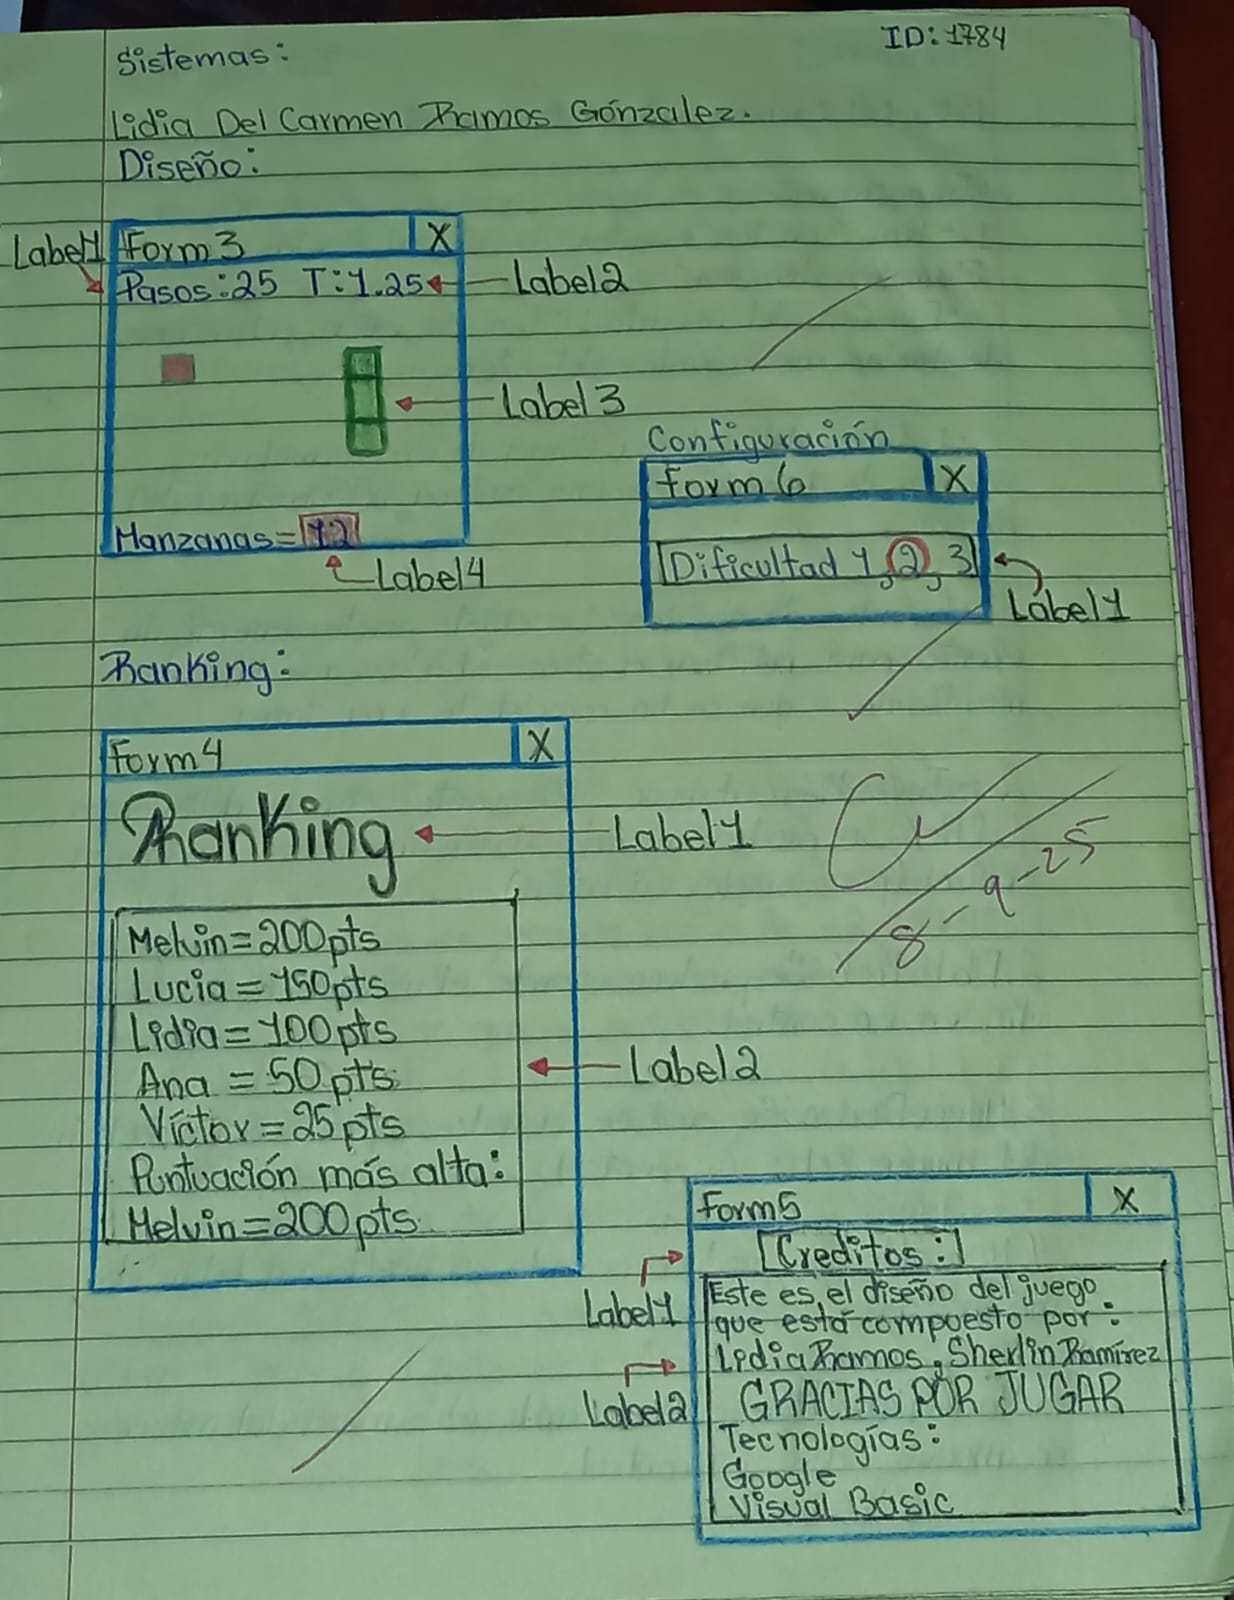 ID: 1784
Sistemas:
Lidia Del Carmen Ramos Gónzalez.
Diseño:
Label1
Form 3 X
Pasos: 25 T: 1.25
Label2
Label3
Manzanas= 12
Label4
Configuración
Form 6 X
Dificultad 1, 2, 3
Label1
Ranking:
Form4 X
Ranking
Label1
8-9-25
Melvin=200pts
Lucia=150pts
Lidia=100pts
Ana =50pts
Víctor=25pts
Puntuación más alta:
Melvin=200pts
Label2
Form5 X
Creditos:
Label1
Este es el diseño del juego
que está compuesto por:
Lidia Ramos, Sherlin Ramírez
Label2
GRACIAS POR JUGAR
Tecnologías:
Google
Visual Basic